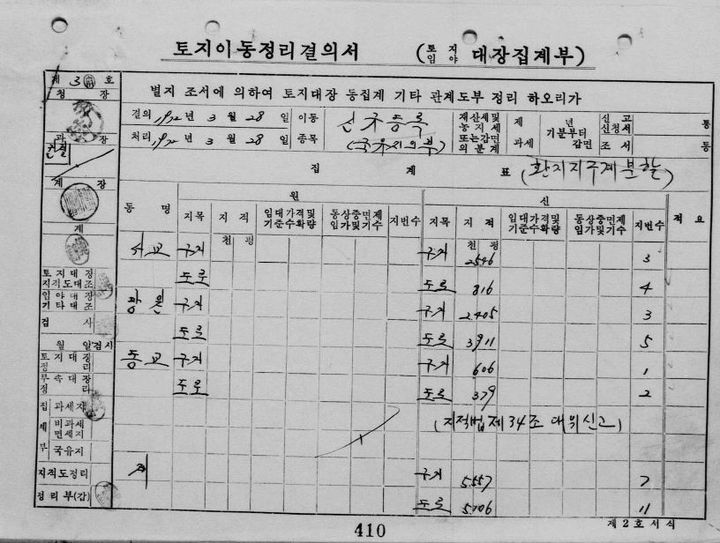 토지이동정리결의서 (토지 임야 대장집계부)
제 3 호
청 장
과 장
계 장
계
별지 조서에 의하여 토지대장 등집계 기타 관계도부 정리 하오리가
결의 1972 년 3 월 28 일 이동 신규등록
처리 1972 년 3 월 28 일 종목
재산세및 농지세 또는감면의 분계
제 과세
년 기분부터 감면
신고 신청서 통
조서 통
집계표 (환지지구계분할)
원 신
동명 지목 지적 임대가격및 기준수확량 동상증면제 임가및기수 지번수 지목 지적 임대가격및 기준수확량 동상증면제 임가및기수 지번수 적요
천 평 천 평
서교 구거 구거 2546 3
도로 도로 816 4
구거 구거 2.405 3
도로 도로 3911 5
동교 구거 구거 606 1
도로 도로 379 2
(지적법 제34조 대위신고)
계 구거 5.557 7
도로 5.106 11
토지대장
지적도대조
임야대장
기타대조
검 사
월 일 검시
토지대장
정 리
부속대장
정 리
집 과세지
계 비과세 면세지
부 국유지
지적도정리
정리부(갑)
제2호서식
410